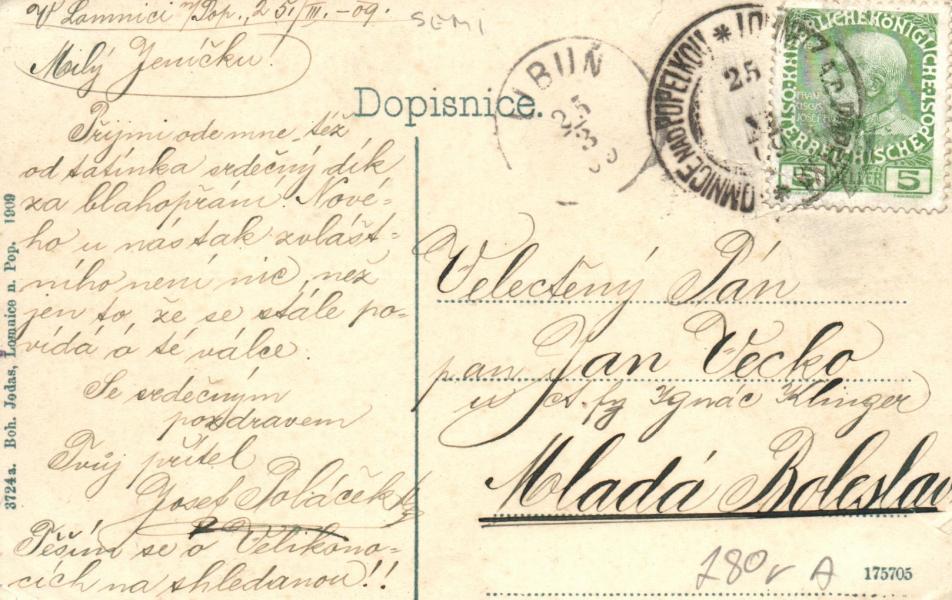 V Lomnici n/Pop., 25./III.-09.
SEMI
Milý Jeníčku!
Dopisnice.
Přijmi ode mne též
od tatínka srdečný dík
za blahopřání. Nové-
ho u nás tak zvlášt-
ního není nic, než
jen to, že se stále po-
vídá o té válce.
Se srdečným
pozdravem
Tvůj přítel
Josef Poláček
Těším se o Velikono-
cích na shledanou!!
3724a. Boh. Jodas, Lomnice n. Pop. 1909
LIBUŇ
25
3
LOMNICE NAD POPELKOU
25
5 HELLER 5
Velectěný Pán
pan Jan Vecko
u Ignác Klinger
Mladá Boleslav
180 A
175705